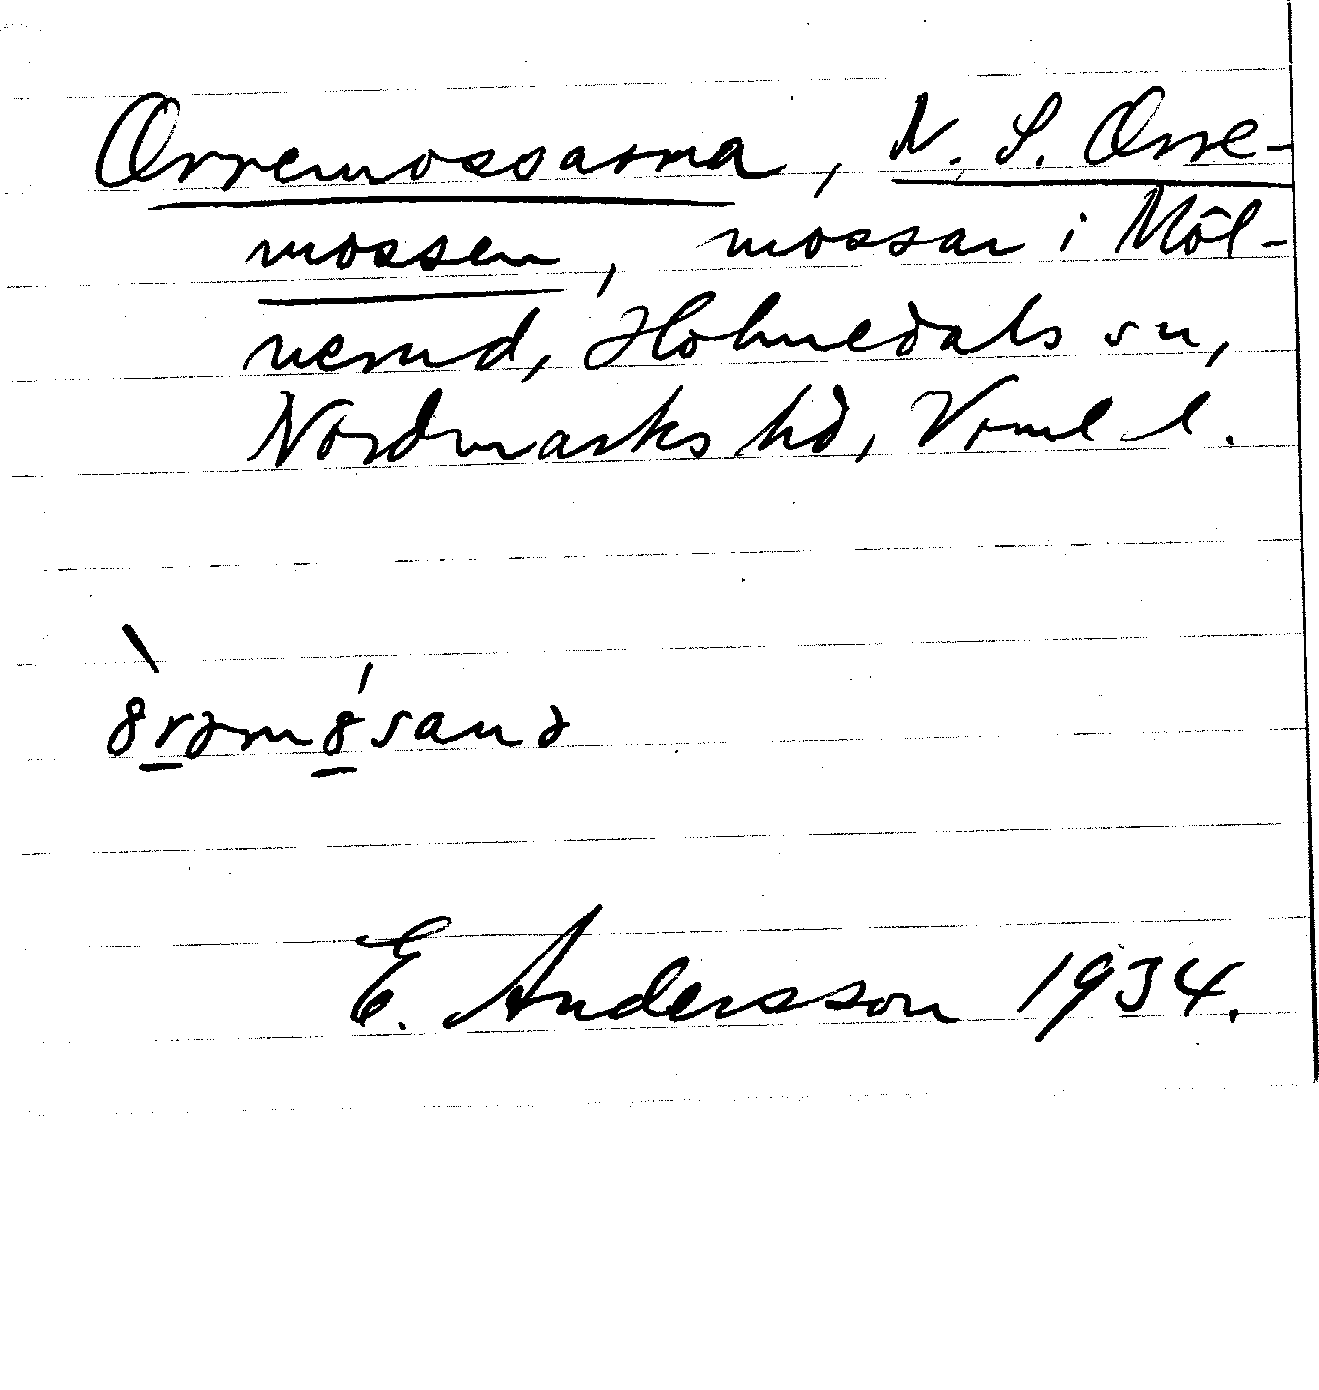 Orremossarna, N. S. Orre-
mossen, mossar i Möl-
nerud, Holmedals sn,
Nordmarks hd, Vrml l.
E. Andersson 1934.